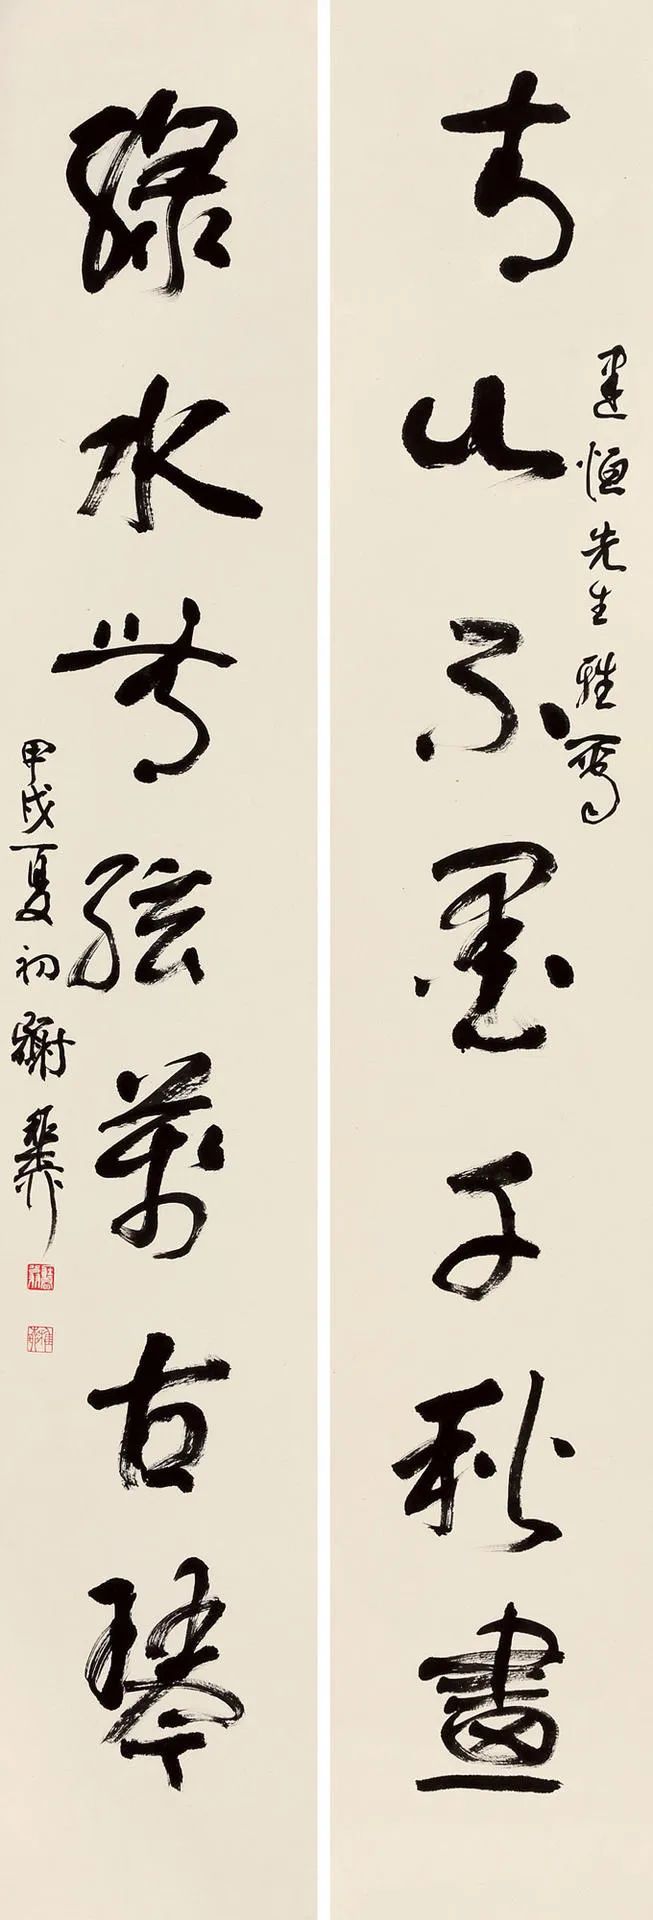 青山不墨千秋畫
建恒先生雅
綠水無絃萬古琴
甲戌夏初